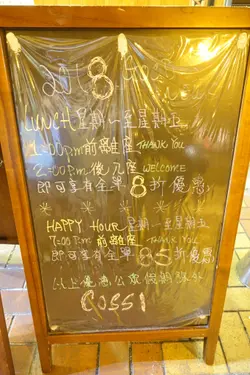 2018
LUNCH 星期一至星期五
1:00 P.m 前離座 THANK YOU
2:00 P.m 後入座 WELCOME
即可享有全單8折優惠
HAPPY Hour 星期一至星期五
7:00 P.m 前離座 THANK YOU
即可享有全單85折優惠
以上優惠公眾假期除外
ROSSI